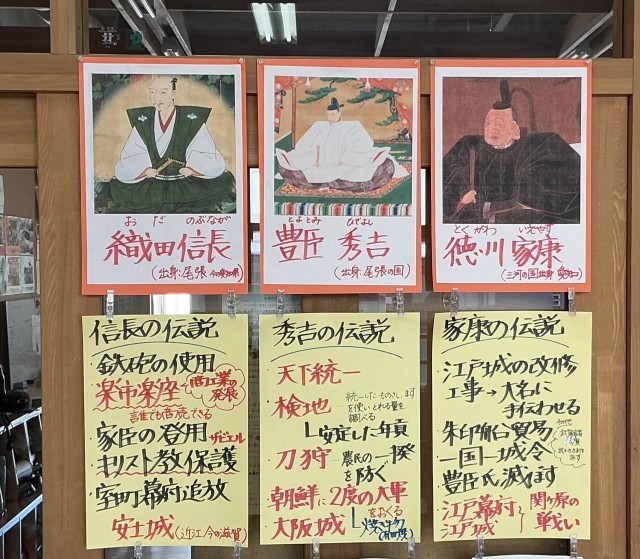 おだ のぶなが
織田信長
(出身:尾張 今の愛知県)
とよとみ ひでよし
豊臣 秀吉
(出身:尾張の国)
とくがわ いえやす
徳川家康
(三河の国出身 愛知)
信長の伝説
・鉄砲の使用
・楽市楽座-商工業の発展
誰でも商売できる
・家臣の登用
ザビエル
・キリスト教保護
・室町幕府追放
安土城(近江 今の滋賀)
秀吉の伝説
・天下統一
・検地
統一したものさし、ます
を使いとれる量を
調べる
↳安定した年貢
・刀狩
農民の一揆
を防ぐ
・朝鮮に2度の大軍
をおくる
・大阪城
↳焼き物(有田焼)
家康の伝説
・江戸城の改修
工事→大名に
手伝わせる
・朱印船貿易
・一国一城令
・豊臣氏滅ぼす
・江戸幕府
江戸城
関ヶ原の
戦い